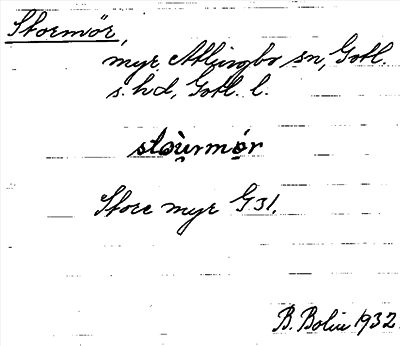 Stormör,
myr, Atlingbo sn, Gotl.
s. hd, Gotl. l.
stòu̯rmör
Store myr G 31.
B. Bolin 1932.